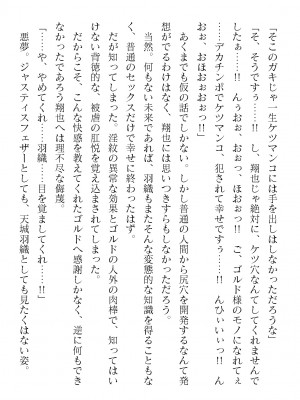 「そこのガキじゃ一生ケツマンコには手を出しはしなかっただろうな」
「そ、そうですぅ……!!　し、翔也じゃ絶対に、ケツ穴なんてしてくれませんで
したぁ……!!　んぅおぉ、おぉっ、ほおぉっ!!　ご、ゴルド様のモノになれて
……デカチンポでケツマンコ、犯されて幸せですぅ……!!　んひぃいいっ!!　ん
おぉぉ、おほおぉぉっ!!」
　あくまでも仮の話でしかない。しかし普通の人間から尻穴を開発するなんて発
想がでるわけはなく、翔也には思いつきすらもしなかっただろう。
　当然。何もない未来であれば、羽織もまたそんな変態的な知識を得ることもな
く、普通のセックスだけで幸せに終わったはず。
　だが知ってしまった。淫紋の異常な効果とゴルドの人外の肉棒で、知ってはい
けない背徳的な、被虐の肛悦を覚え込まされてしまった。
　だからこそ、こんな快感を教えてくれたゴルドへ感謝しかなく、逆に何もでき
なかったであろう翔也へは理不尽な侮蔑。
「……や、やめてくれ……羽織……目を覚ましてくれ……!!」
　悪夢。ジャスティスフェザーとしても、天城羽織としても見たくはない姿。